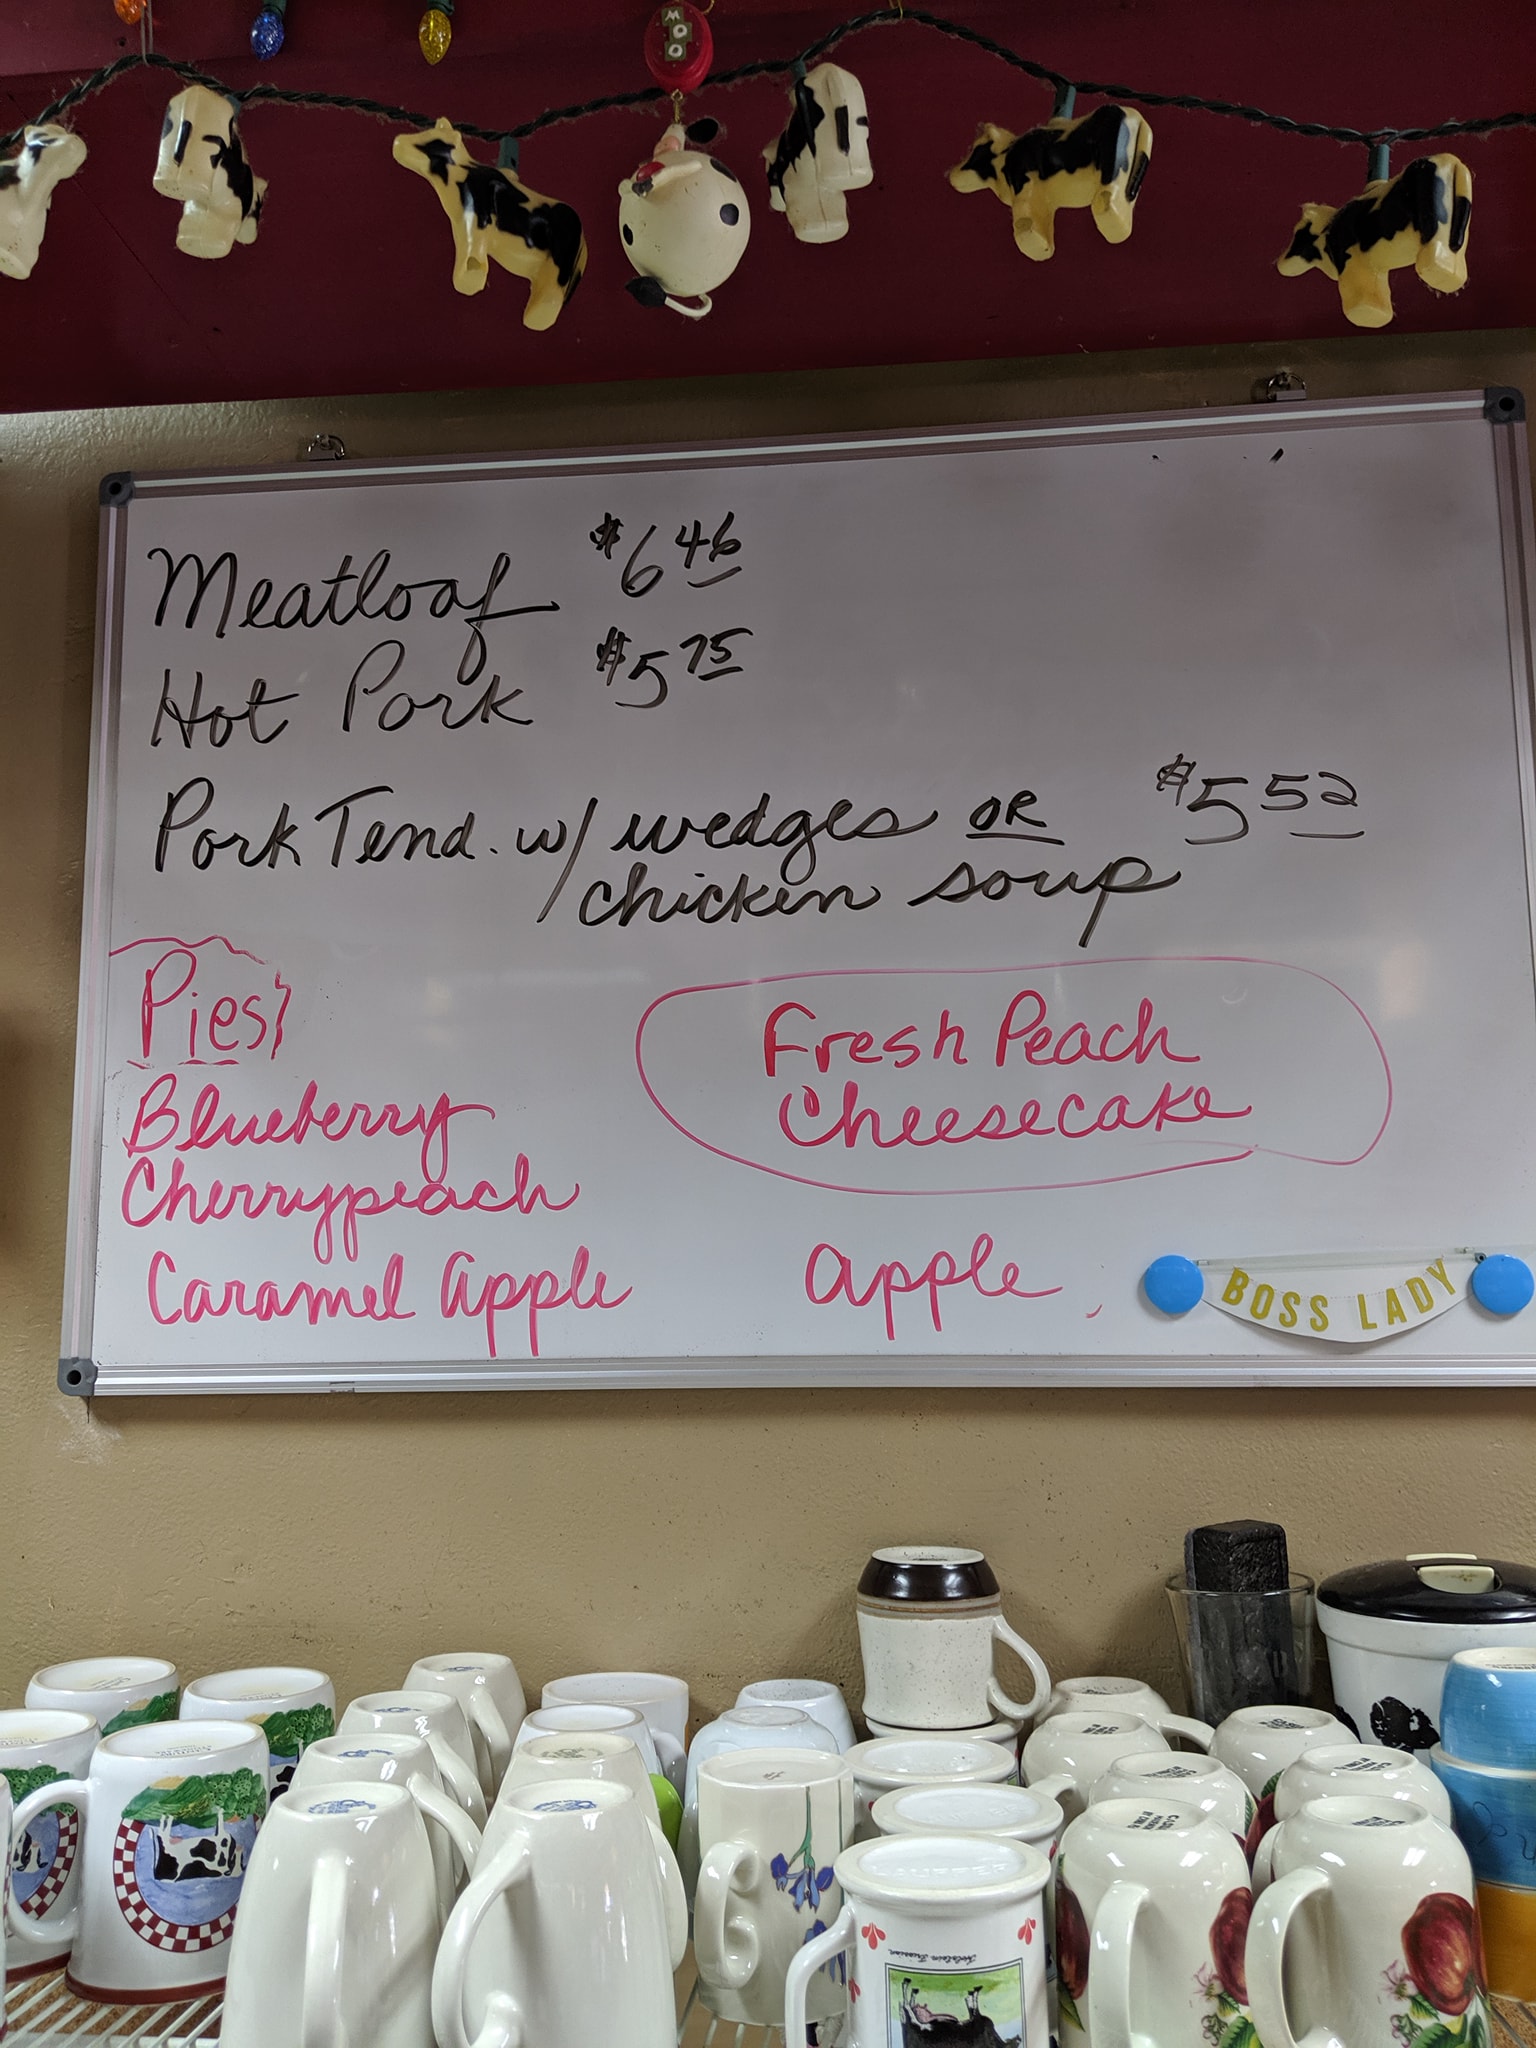 MOO
Meatloaf $6 46
Hot Pork $5 75
Pork Tend. w/ wedges OR $5 52
chicken soup
Pies
Blueberry
Cherrypeach
Caramel Apple
Fresh Peach
Cheesecake
apple
BOSS LADY